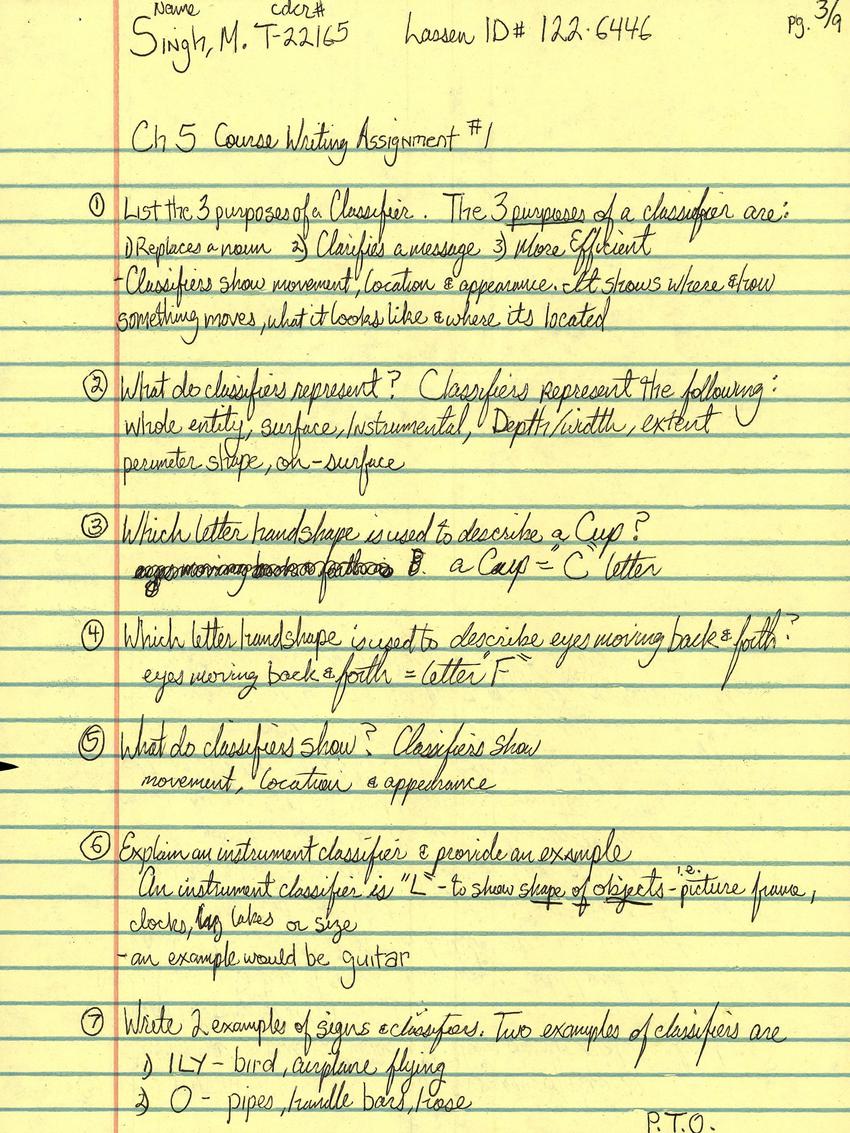 Name cdcr# pg. 3/9
Singh, M. T-22165 Lassen ID# 122-6446
Ch 5 Course Writing Assignment #1
① List the 3 purposes of a Classifier. The 3 purposes of a classifier are:
1) Replaces a noun 2) Clarifies a message 3) More Efficient
- Classifiers show movement, location & appearance. It shows where & how
something moves, what it looks like & where its located
② What do classifiers represent? Classifiers represent the following:
whole entity, surface, instrumental, Depth/width, extent
perimeter shape, on-surface
③ Which letter handshape is used to describe a Cup?
a Cup = "C" letter
④ Which letter handshape is used to describe eyes moving back & forth?
eyes moving back & forth = letter "F"
⑤ What do classifiers show? Classifiers show
movement, location & appearance
⑥ Explain an instrument classifier & provide an example
An instrument classifier is "L" - to show shape of objects - i.e. picture frame,
clocks, lakes or size
- an example would be guitar
⑦ Write 2 examples of signs & classifiers. Two examples of classifiers are
1) ILY - bird, airplane flying
2) O - pipes, handle bars, hose
P.T.O.